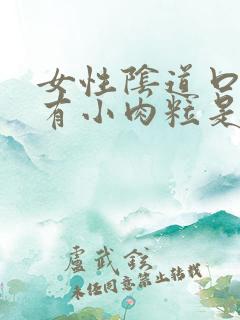 女性陰道口
有小肉粒是
盧武鉉
未经同意禁止转载